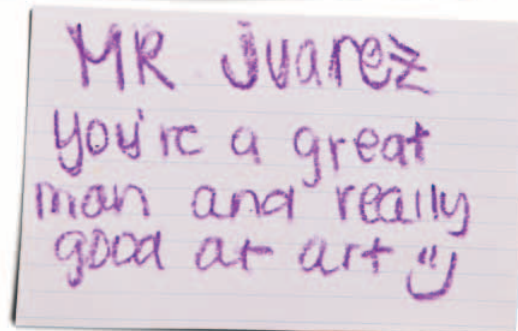 MR juarez
you're a great
man and really
good at art :)